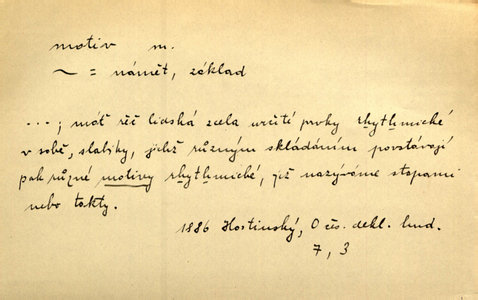 motiv m.
~ = námět, základ
...; máť řeč lidská zcela určité prvky rhythmické
v sobě, slabiky, jichž různým skládáním povstávají
pak různé motivy rhythmické, jež nazýváme stopami
nebo takty.
1886 Hostinský, O čes. dekl. hud.
7, 3